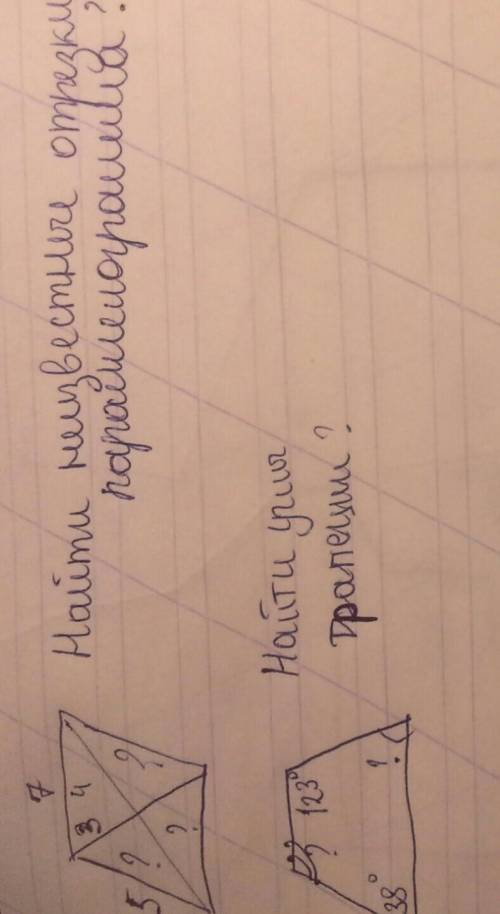 Найти неизвестные отрезки
параллелограмма?
7
3 4
5 ? ?
?
Найти углы
трапеции?
? 123°
38° ?